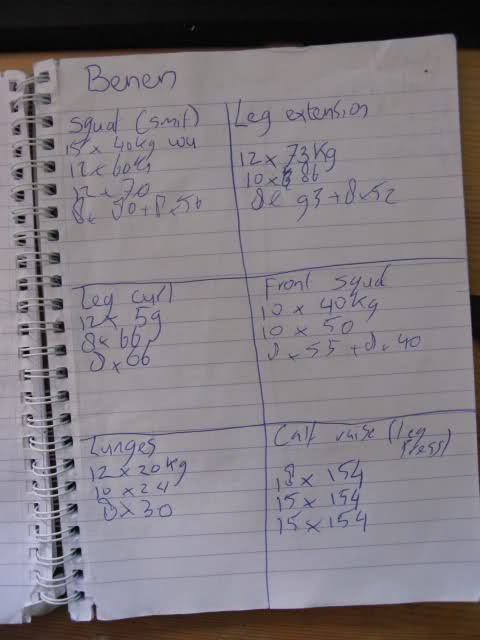 Benen
Squd (smit)
15 x 40kg wu
12 x 60kg
12 x 70
8 x 90 + 8 x 50
Leg extension
12 x 73kg
10 x 86
8 x 93 + 8 x 52
Leg curl
12 x 59
8 x 66
8 x 66
Front squd
10 x 40kg
10 x 50
8 x 55 + 8 x 40
Lunges
12 x 20kg
10 x 24
8 x 30
Calf raise (leg
press)
18 x 154
15 x 154
15 x 154